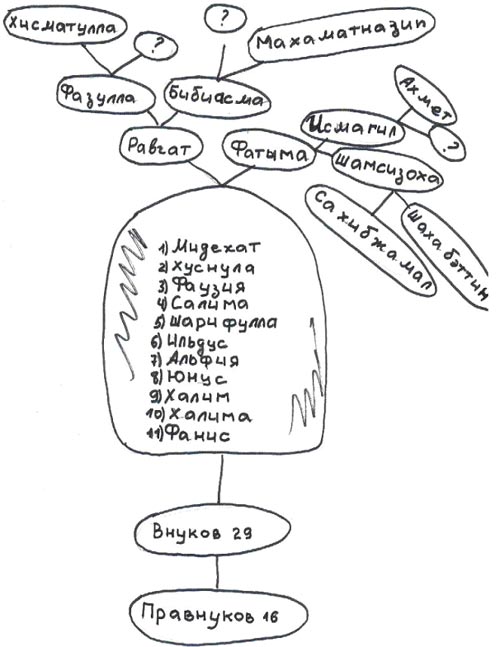 Хисматулла
?
?
Махаматназип
Фазулла
Бибиасма
Равгат
Фатыма
Исмагил
Ахмет
?
Шамсизоха
Сахибжамал
Шахабэттин
1) Мидехат
2) Хуснула
3) Фаузия
4) Салима
5) Шарифулла
6) Ильдус
7) Альфия
8) Юнус
9) Халим
10) Халима
11) Фанис
Внуков 29
Правнуков 16